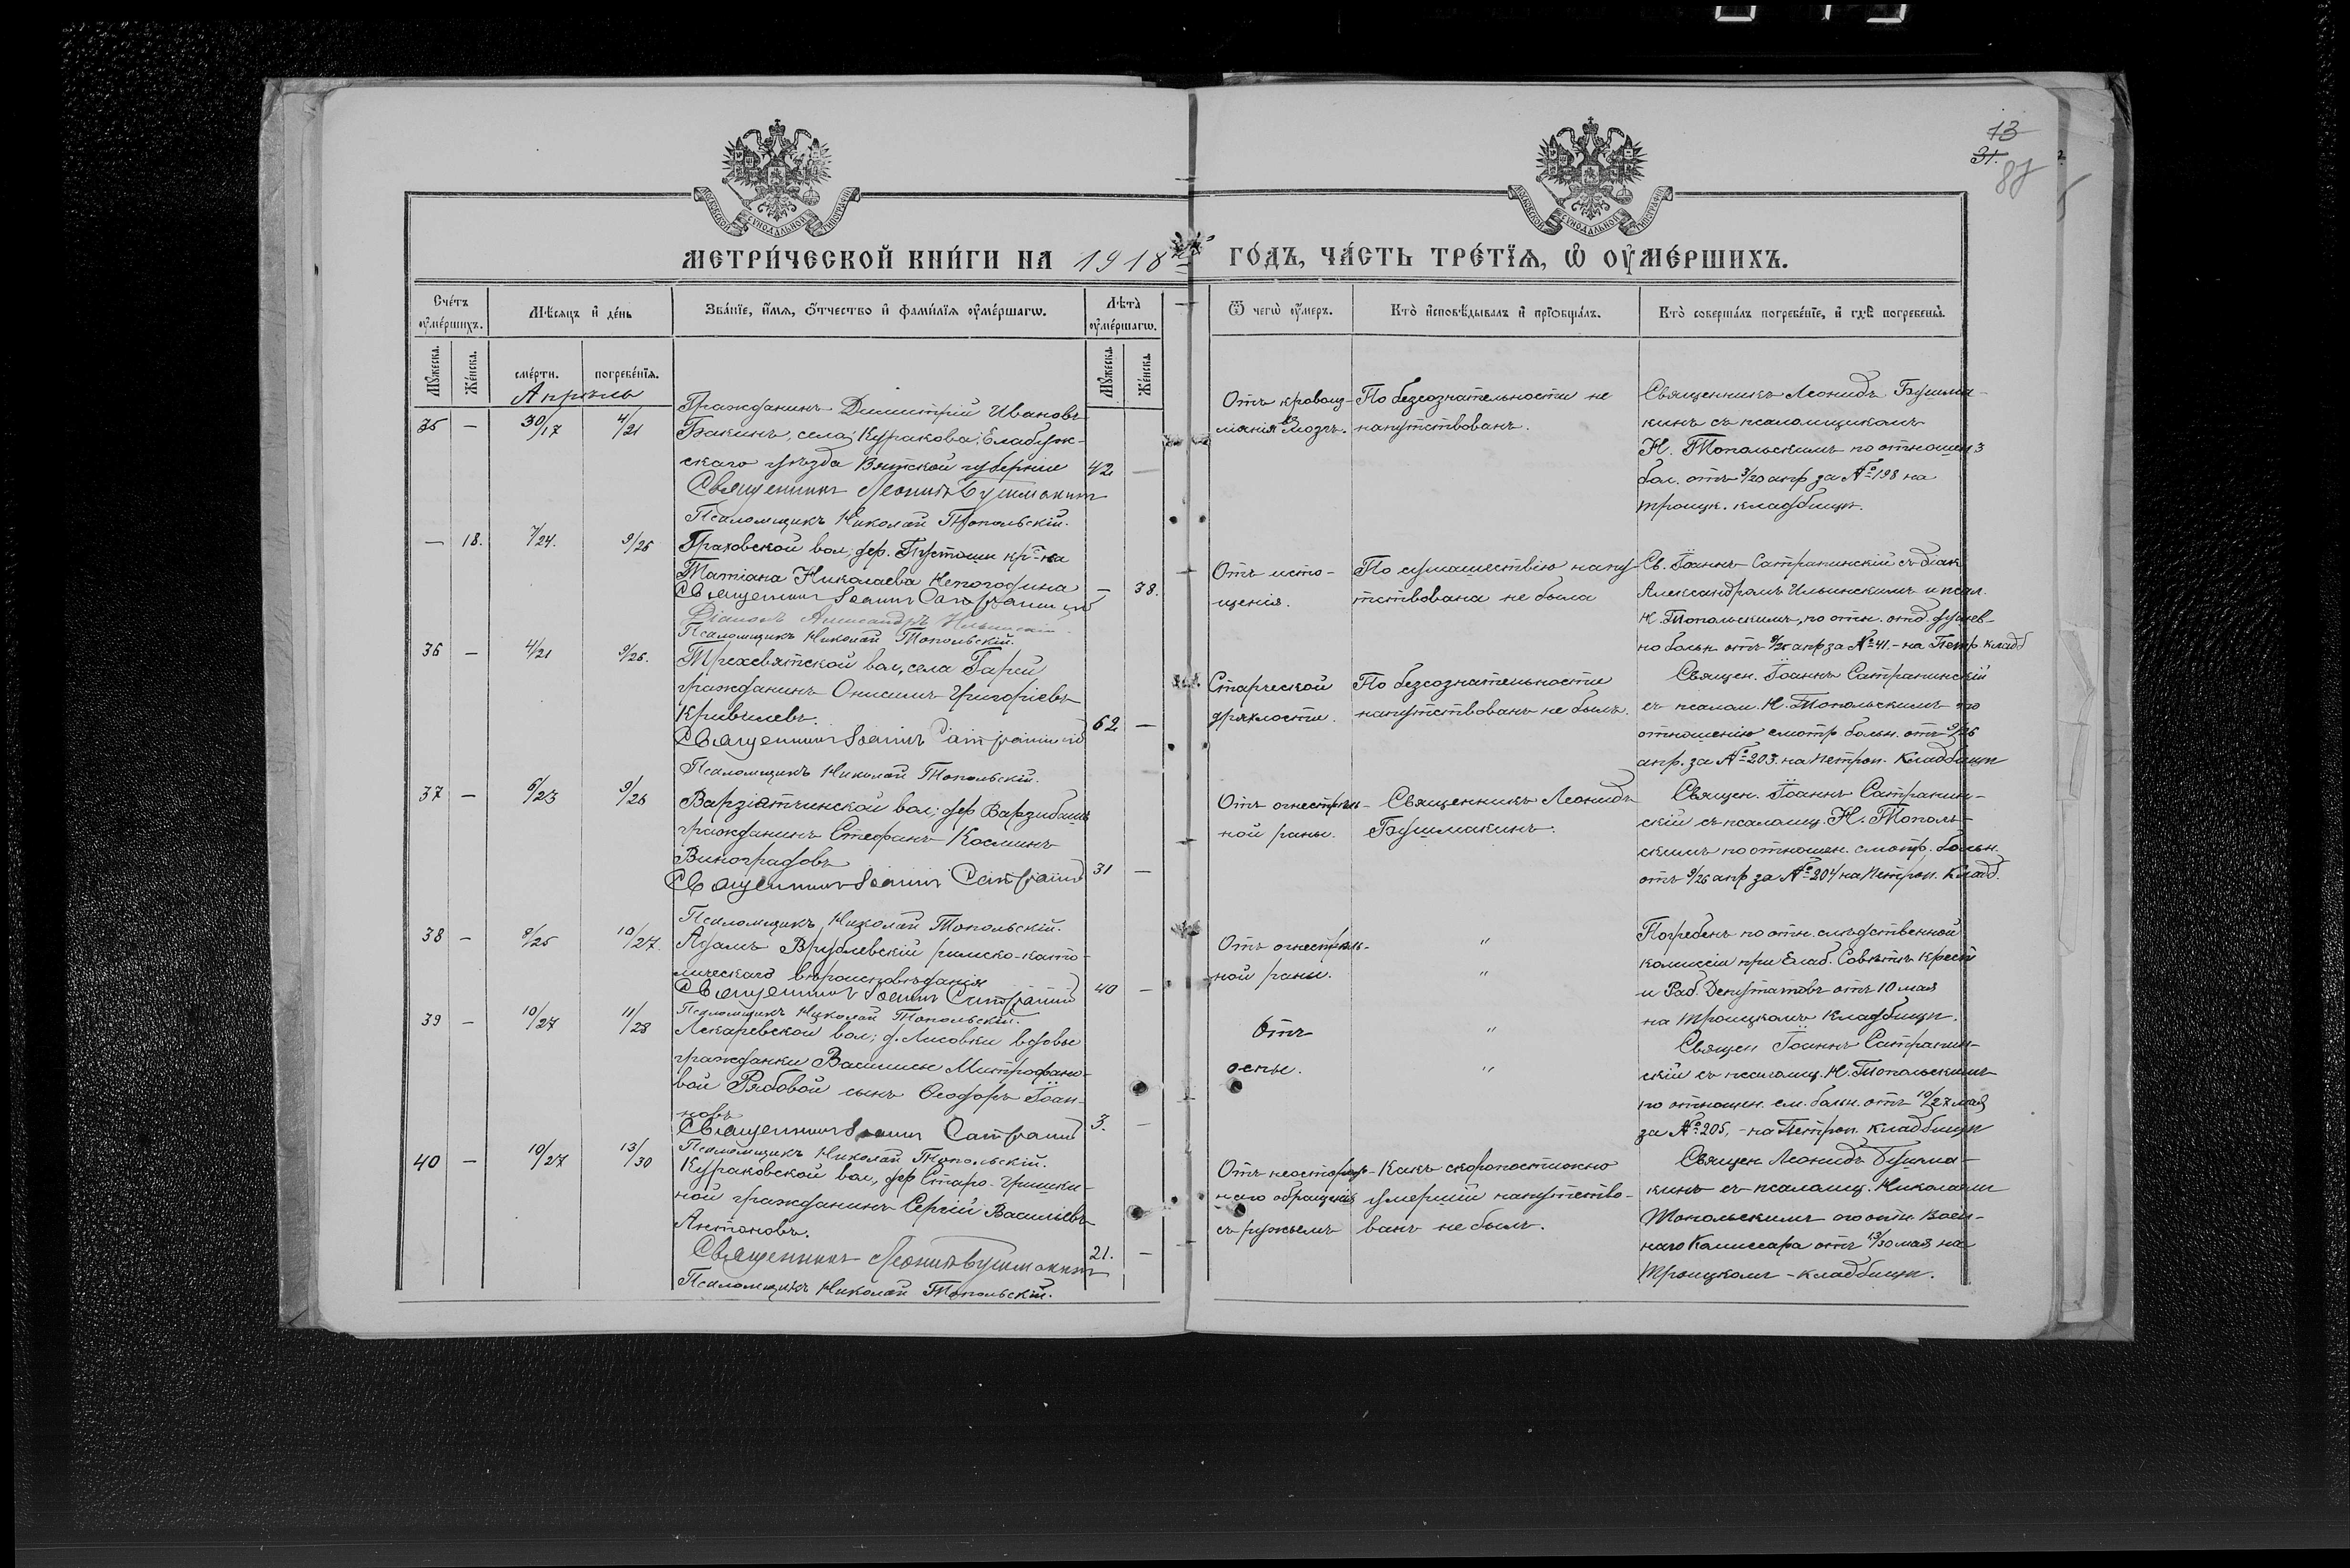 13
31.
87
МЕТРИ́ЧЕСКОЙ КНИ́ГИ НА 1918 ГО́ДЪ, ЧА́СТЬ ТРЕ́ТЇѦ, Ѽ ОУ҆МЕ́РШИХЪ.
Сче́тъ оу҆ме́ршихъ.
Мѣ́сѧцъ и҆ де́нь
Зва́нїе, и҆́мѧ, ѻ҆́тчество и҆ фами́лїѧ оу҆ме́ршагѡ.
Лѣ́та оу҆ме́ршагѡ.
Ѿ чегѡ̀ оу҆́меръ.
Кто̀ и҆сповѣ́дывалъ и҆ прїѡбща́лъ.
Кто̀ соверша́лъ погребе́нїе, и҆ гдѣ̀ погребены̀.
Мꙋ́жеска.
Же́нска.
сме́рти.
погребе́нїѧ.
Мꙋ́жеска.
Же́нска.
Апрѣль
35 — 30/17 4/21
Гражданинъ Димитрій Ивановъ
Бакинъ, села Куракова, Елабуж-
скаго уѣзда Вятской губерніи 42 —
Священникъ Леонидъ Бушмакинъ
Псаломщикъ Николай Топольскій.
Отъ кровоиз-
ліянія въ мозгъ.
По безсознательности не
напутствованъ.
Священникъ Леонидъ Бушма-
кинъ съ псаломщикомъ
Н. Топольскимъ по отношен
бол. отъ 3/20 апр за № 198 на
Троицк. кладбищѣ.
— 18. 7/24. 9/26
Граховской вол., дер. Пустоши кр-ка
Татіана Николаева Непогодина — 38.
Священникъ Іоаннъ Сатрапинскій
Діаконъ Александръ Ильинскій
Псаломщикъ Николай Топольскій.
Отъ исто-
щенія.
По сумашествію напу-
тствована не была
Св. Іоаннъ Сатрапинскій съ діак
Александромъ Ильинскимъ и псал.
Н. Топольскимъ, по отн. отд. душев-
но больн. отъ 9/26 апр за № 41. — на Петр кладб
36 — 4/21 9/26.
Трехсвятской вол., села Гарей
гражданинъ Онисимъ Григоріевъ
Кривилевъ. 62 —
Священникъ Іоаннъ Сатрапинскій
Псаломщикъ Николай Топольскій.
Старческой
дряхлости.
По безсознательности
напутствованъ не былъ.
Священ. Іоаннъ Сатрапинскій
съ псалом. Н. Топольскимъ по
отношенію смотр больн. отъ 9/26
апр. за № 203. на Петроп. Кладбищѣ
37 — 6/23 9/26
Варзіятчинской вол., дер Варзибашъ
гражданинъ Стефанъ Косминъ
Виноградовъ 31 —
Священникъ Іоаннъ Сатрапинскій
Псаломщикъ Николай Топольскій.
Отъ огнестрѣль-
ной раны.
Священникъ Леонидъ
Бушмакинъ.
Священ. Іоаннъ Сатрапин-
скій съ псаломщ. Н. Тополь-
скимъ по отношен. смотр. больн.
отъ 9/26 апр за № 204 на Петроп. Кладб.
38 — 8/25 10/27.
Адамъ Врублевскій римско-като-
лическаго вѣроисповѣданія 40 —
Священникъ Іоаннъ Сатрапинскій
Псаломщикъ Николай Топольскій.
Отъ огнестрѣль-
ной раны.
"
"
Погребенъ по отн. слѣдственной
комиссіи при Елаб. Совѣтѣ Крест
и Раб. Депутатовъ отъ 10 мая
на Троицкомъ Кладбищѣ.
39 — 10/27 11/28
Лекаревской вол., д. Лисовки вдовы
гражданки Василисы Митрофано-
вой Рябовой сынъ Ѳеодоръ Іоан-
новъ 3. —
Священникъ Іоаннъ Сатрапинскій
Псаломщикъ Николай Топольскій.
Отъ
оспы.
"
"
Священ Іоаннъ Сатрапин-
скій съ псаломщ. Н. Топольскимъ
по отношен. см. больн. отъ 10/27 мая
за № 205, — на Петроп. кладбищѣ
40 — 10/27 13/30
Кураковской вол., дер Старо-Гришки-
ной гражданинъ Сергій Васильевъ
Антоновъ. 21. —
Священникъ Леонидъ Бушмакинъ
Псаломщикъ Николай Топольскій.
Отъ неосторож-
наго обращенія
съ ружьемъ
Какъ скоропостижно
умершій напутство-
ванъ не былъ.
Священ Леонидъ Бушма-
кинъ съ псаломщ. Николаемъ
Топольскимъ по отн. Воен-
наго Комиссара отъ 13/30 мая на
Троицкомъ — кладбищѣ.